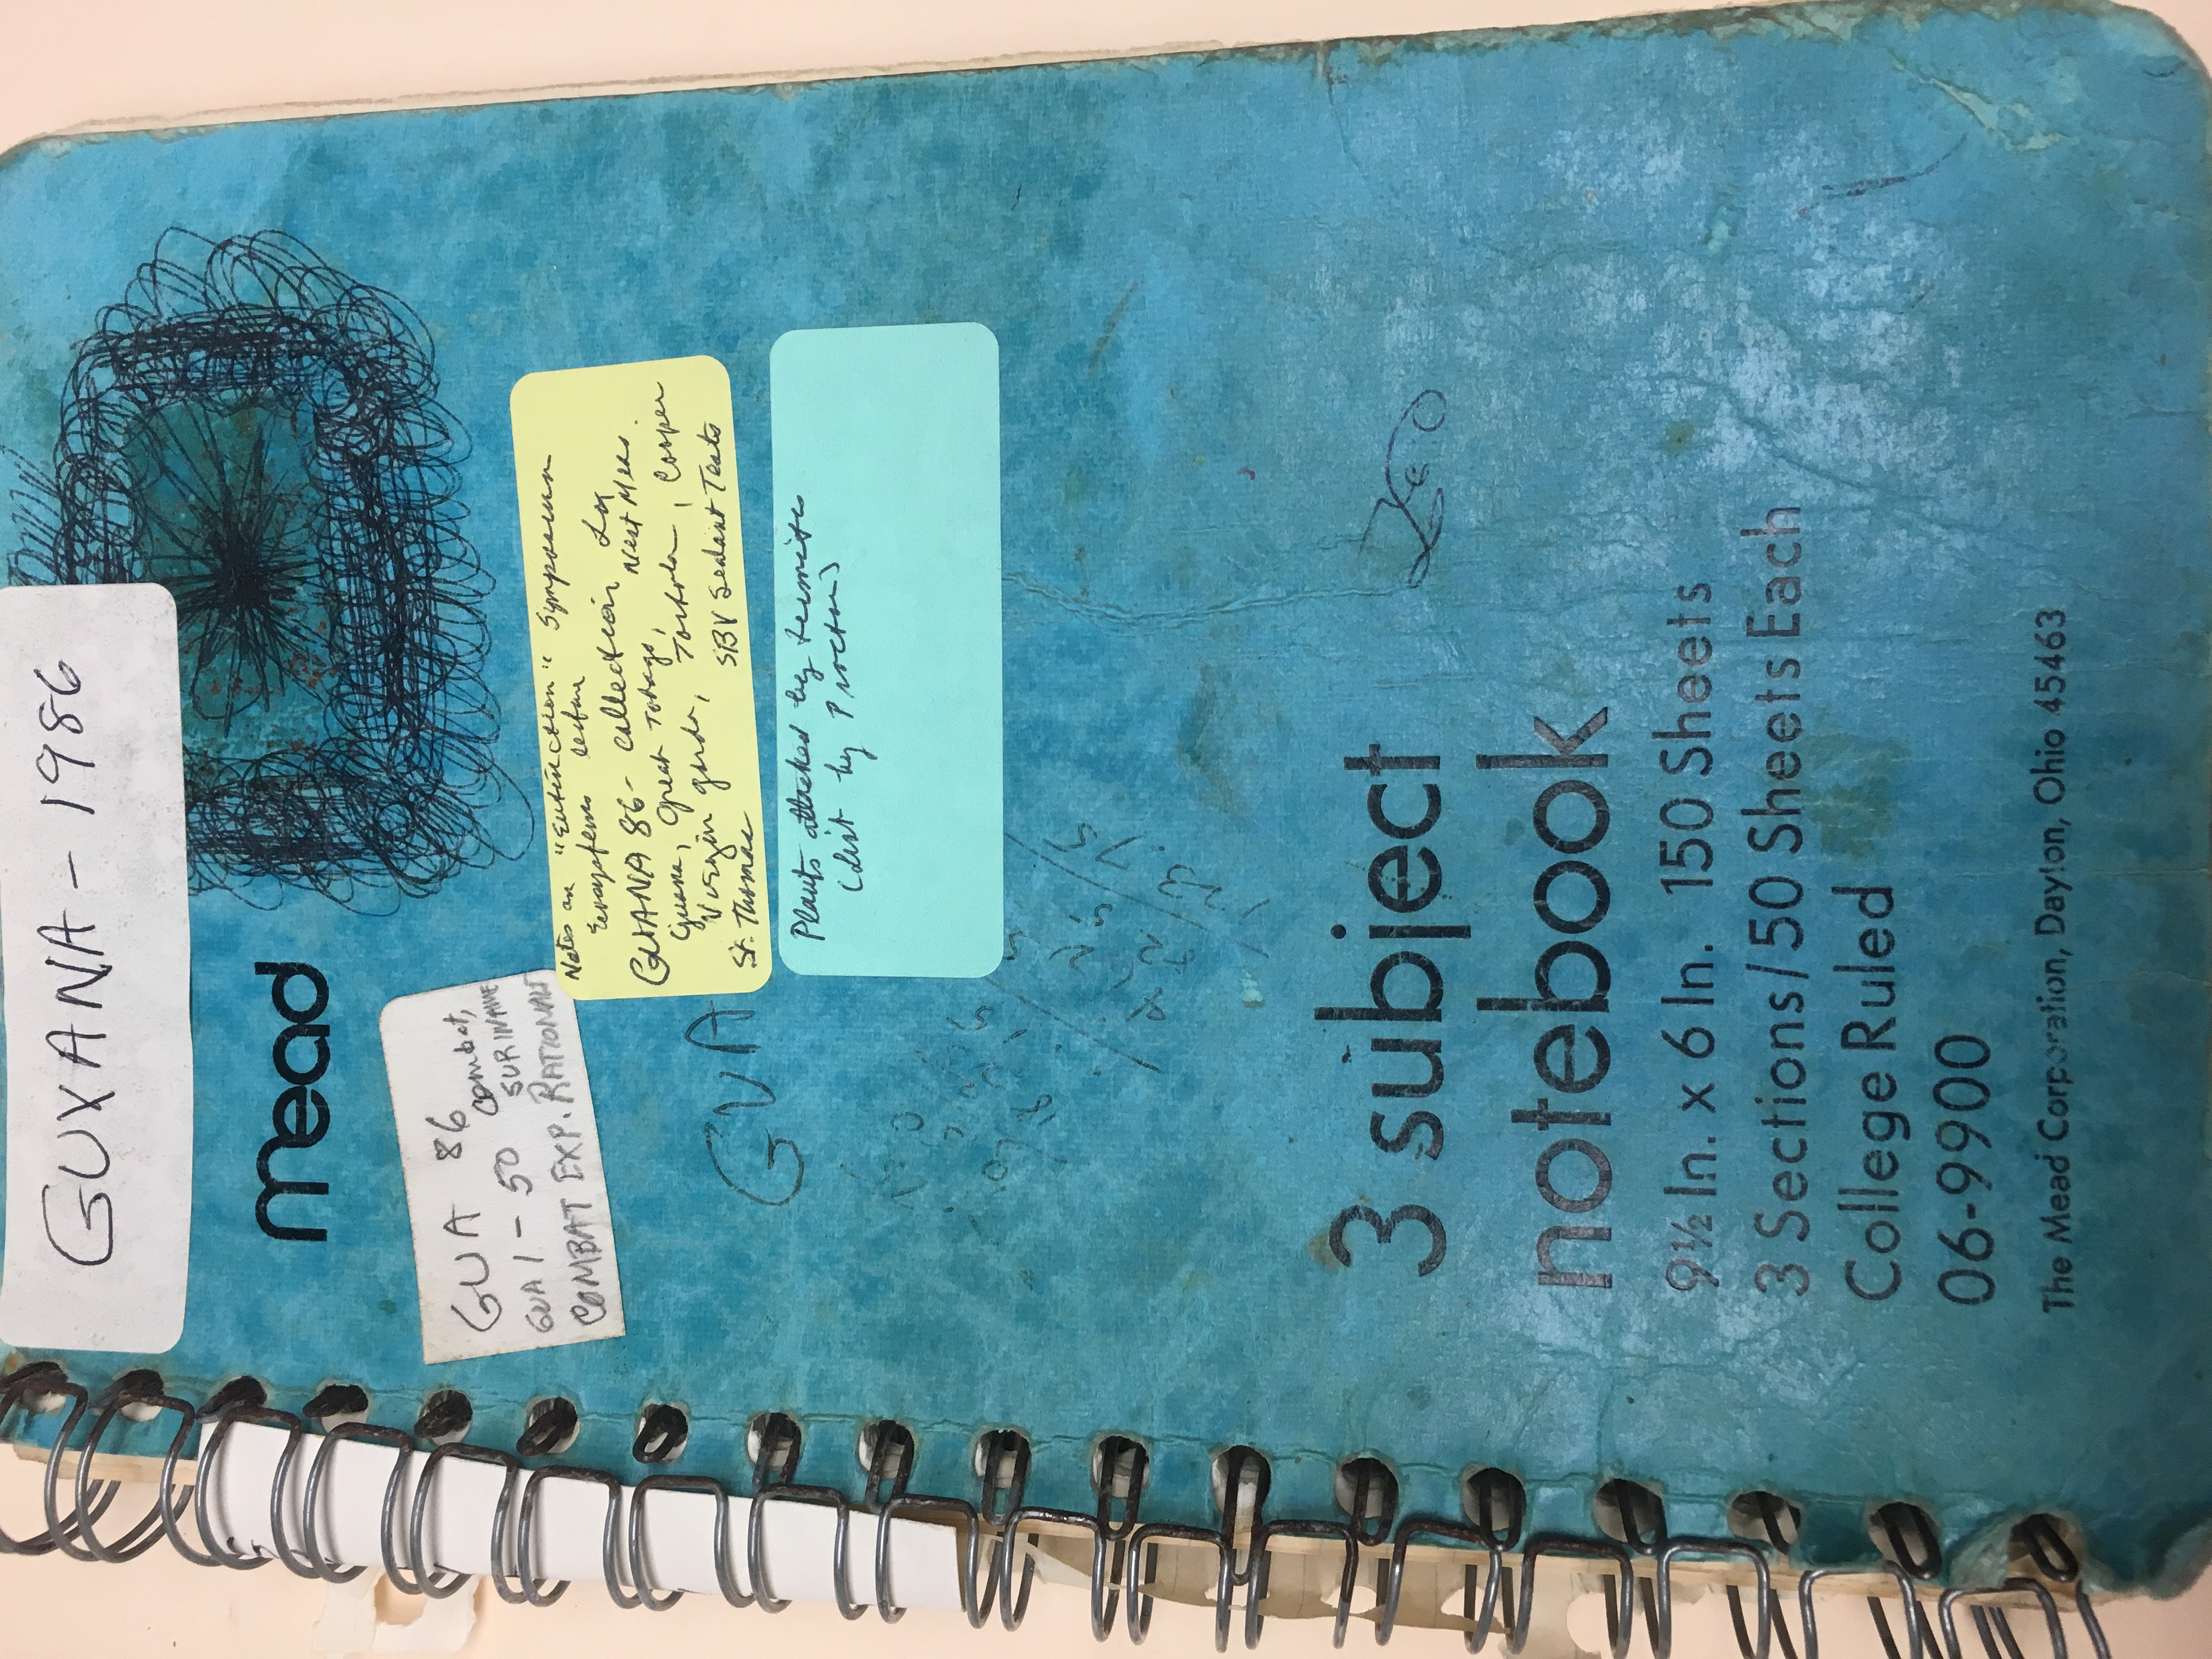 GUXANA - 1986
mead
GUA 86
Combat,
GUA 1 - 50 SURINAME
COMBAT EXP. RATIONALE
Notes on "Extinction" Symposium
Ecosystems lecture
GUANA 86 - collection
Guana, Great Tobago, Nest Meas.
Virgin gorda, Tortola, Cooper
St. Thomas SBV Sealant Tests
GUA
Plants attacked by termites
(List by Proctor)
123.75
3 subject
notebook
9½ In. x 6 In. 150 Sheets
3 Sections/50 Sheets Each
College Ruled
06-9900
The Mead Corporation, Dayton, Ohio 45463